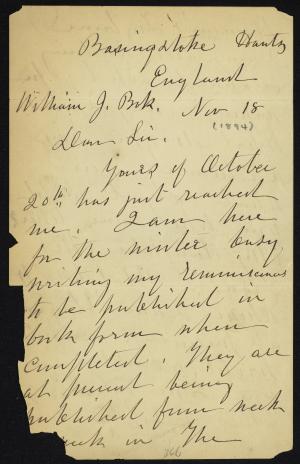 Basingstoke Hants
England
William J. Bok. Nov 18
(1894)
Dear Sir.
Yours of October
20th has just reached
me. I am here
for the winter busy
writing my reminiscences
to be published in
book form when
completed. They are
at present being
published from week
week in The